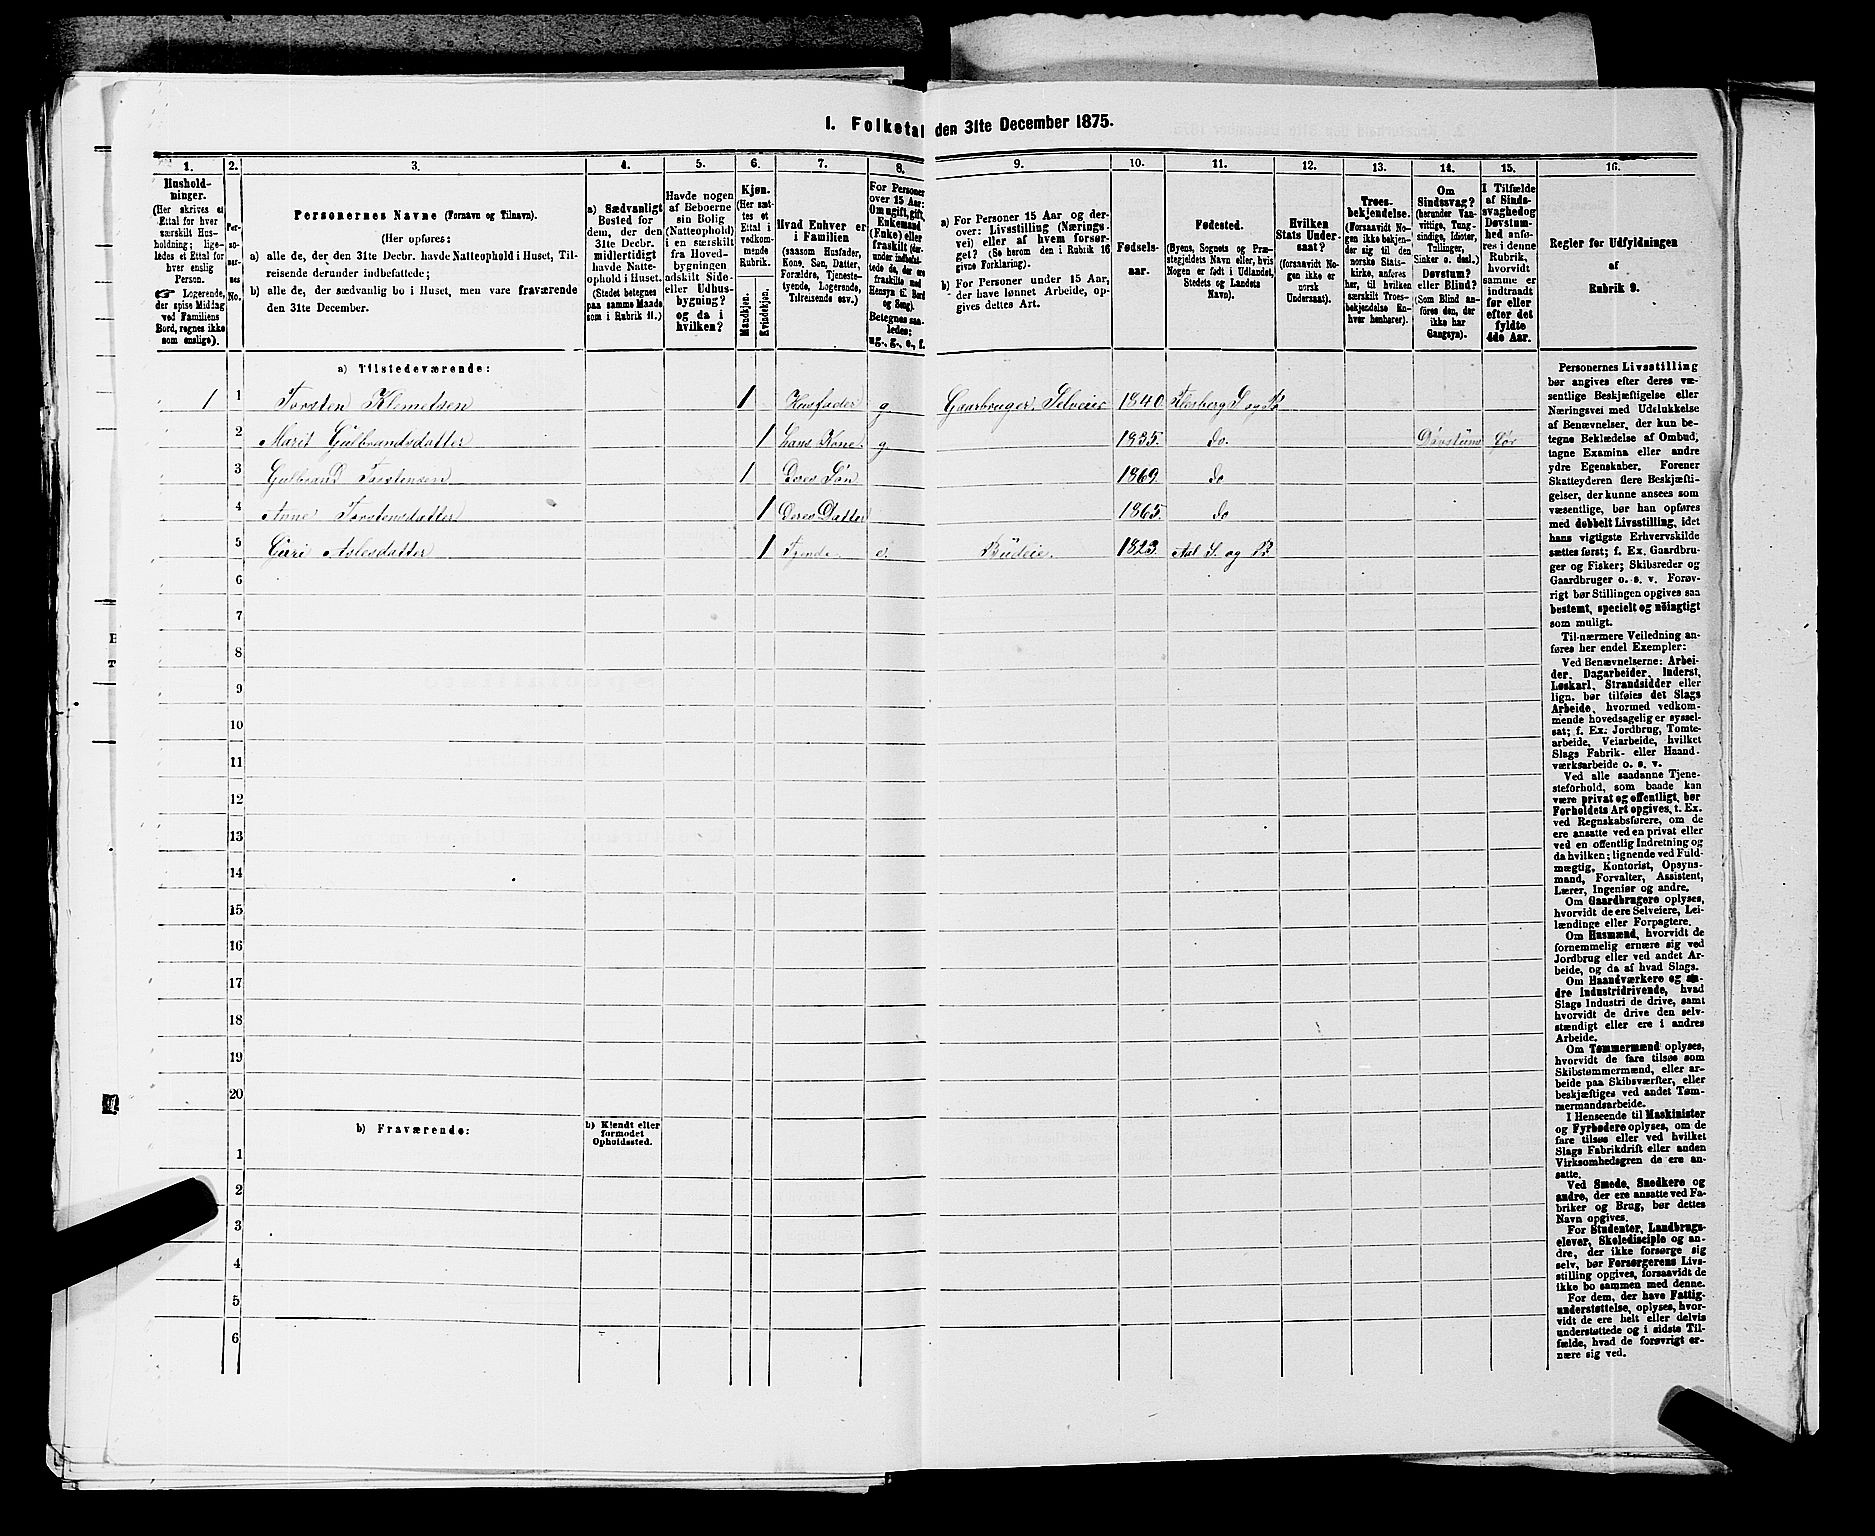 1. Folketal den 31te December 1875.
1. 2. 3. 4. 5. 6. 7. 8. 9. 10. 11. 12. 13. 14. 15. 16.
Hushold-
ninger.
(Her skrives et
Ettal for hver
særskilt Hus-
holdning; lige-
ledes et Ettal for
hver enslig
Person.
☞ Logerende,
der spise Middag
ved Familiens
Bord, regnes ikke
som enslige).
Per-
so-
ner-
nes
No.
Personernes Navne (Fornavn og Tilnavn).
(Her opføres:
a) alle de, der den 31te Decbr. havde Natteophold i Huset, Til-
reisende derunder indbefattede;
b) alle de, der sædvanlig bo i Huset, men vare fraværende
den 31te December.
a) Sædvanligt
Bosted for
dem, der den
31te Decbr.
midlertidigt
havde Natte-
ophold i Huset.
(Stedet betegnes
paa samme Maade
som i Rubrik 11.)
Havde nogen
af Beboerne
sin Bolig
(Natteophold)
i en særskilt
fra Hoved-
bygningen
adskilt Side-
eller Udhus-
bygning?
og da i
hvilken?
Kjøn.
(Her sæt-
tes et
Ettal i
vedkom-
mende
Rubrik.
Mandkjøn.
Kvindekjøn.
Hvad Enhver er
i Familien
(saasom Husfader,
Kone, Søn, Datter,
Forældre, Tjeneste-
tyende, Logerende,
Tilreisende osv.)
For Personer
over 15 Aar:
Om ugift, gift,
Enkemand
(Enke) eller
fraskilt (der-
under indbefat-
tede de, der ere
fraskilte med
Hensyn til Bord
og Seng).
Betegnes saa-
ledes:
ug., g., e., f.
a) For Personer 15 Aar og der-
over: Livsstilling (Nærings-
vei) eller af hvem forsør-
get? (Se herom den i Rubrik 16
givne Forklaring).
b) For Personer under 15 Aar,
der have lønnet Arbeide, op-
gives dettes Art.
Fødsels-
aar.
Fødested.
(Byens, Sognets og Præ-
stegjeldets Navn eller, hvis
Nogen er født i Udlandet,
Stedets og Landets
Navn).
Hvilken
Stats Under-
saat?
(forsaavidt No-
gen ikke er
norsk
Undersaat).
Troes-
bekjendelse.
(Forsaavidt No-
gen ikke bekjen-
der sig til den
norske Stats-
kirke, anføres
her, til hvilken
særskilt Troes-
bekjendelse En-
hver henhører).
Om
Sindssvag?
(herunder Van-
vittige, Tung-
sindige, Idioter,
Tullinger,
Sinker o. desl.)
Døvstum?
eller Blind?
(Som Blind an-
føres den, der
ikke har
Gangsyn).
I Tilfælde
af Sinds-
svaghed og
Døvstum-
hed anfø-
res i denne
Rubrik,
hvorvidt
samme er
indtraadt
før eller
efter det
fyldte
4de Aar.
Regler for Udfyldningen
af
Rubrik 9.
a) Tilstedeværende:
1 1 Torsten Klemetsen 1 Husfader g Gaarbruger. Selveier 1840 Flesberg S. og Pr
2 Marit Gulbrandsdatter 1 hans Kone g 1835. do. Døvstum før
3 Gulbrand Torstensen 1 Deres Søn 1869. do
4 Anne Torstensdatter 1 Deres Datter 1865. do
5 Guri Aslesdatter 1 Tjende. e. Budeie. 1823. Aal S. og Pr.
6
7
8
9
10
11
12
13
14
15
16
17
18
19
20
b) Fraværende:
b) Kjendt eller
formodet
Opholdssted.
1
2
3
4
5
6
Personernes Livsstilling
bør angives efter deres væ-
sentlige Beskjæftigelse eller
Næringsvei med Udelukkelse
af Benævnelser, der kun be-
tegne Beklædelse af Ombud,
tagne Examina eller andre
ydre Egenskaber. Forener
Skatteyderen flere Beskjæfti-
gelser, der kunne ansees som
væsentlige, bør han opføres
med dobbelt Livsstilling, idet
hans vigtigste Erhvervskilde
sættes først; f. Ex. Gaardbru-
ger og Fisker; Skibsreder og
Gaardbruger o. s. v. Forøv-
rigt bør Stillingen opgives saa
bestemt, specielt og nøiagtigt
som muligt.
Til nærmere Veiledning an-
føres her endel Exempler:
Ved Benævnelserne: Arbei-
der, Dagarbeider, Inderst,
Løskarl, Strandsidder eller
lign. bør tilføies det Slags
Arbeide, hvormed vedkom-
mende hovedsagelig er syssel-
sat; f. Ex. Jordbrug, Tomte-
arbeide, Veiarbeide, hvilket
Slags Fabrik- eller Haand-
værksarbeide o. s. v.
Ved alle saadanne Tjene-
steforhold, som baade kan
være privat og offentligt, bør
Forholdets Art opgives, t. Ex.
ved Regnskabsførere, om de
ere ansatte ved en privat eller
ved en offentlig Indretning og
da hvilken; lignende ved Fuld-
mægtig, Kontorist, Opsyns-
mand, Forvalter, Assistent,
Lærer, Ingeniør og andre.
Om Gaardbrugere oplyses,
hvorvidt de ere Selveiere, Lei-
lændinge eller Forpagtere.
Om Husmænd, hvorvidt de
fornemmelig ernære sig ved
Jordbrug eller ved andet Ar-
beide, og da af hvad Slags.
Om Haandværkere og an-
dre Industridrivende, hvad
Slags Industri de drive, samt
hvorvidt de drive den selv-
stændigt eller ere i andres
Arbeide.
Om Tømmermænd oplyses,
hvorvidt de fare tilsøs som
Skibstømmermænd, eller ar-
beide paa Skibsværfter, eller
beskjæftiges ved andet Tøm-
mermandsarbeide.
I Henseende til Maskinister
og Fyrbødere oplyses, om de
fare tilsøs eller ved hvilket
Slags Fabrikdrift eller anden
Virksomhedsgren de ere an-
satte.
Ved Smede, Snedkere og
andre, der ere ansatte ved Fa-
briker og Brug, bør dettes
Navn opgives.
For Studenter, Landbrugs-
elever, Skoledisciple og an-
dre, der ikke forsørge sig
selv, bør Forsørgerens Livs-
stilling opgives, forsaavidt de
ikke bo sammen med denne.
For dem, der have Fattig-
understøttelse, oplyses, hvor-
vidt de ere helt eller delvis
understøttede og i sidste Til-
fælde, hvad de forøvrigt er-
nære sig ved.